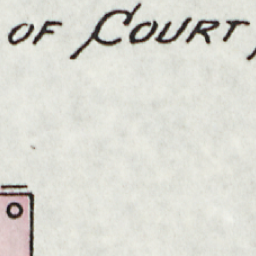 OF COURT,